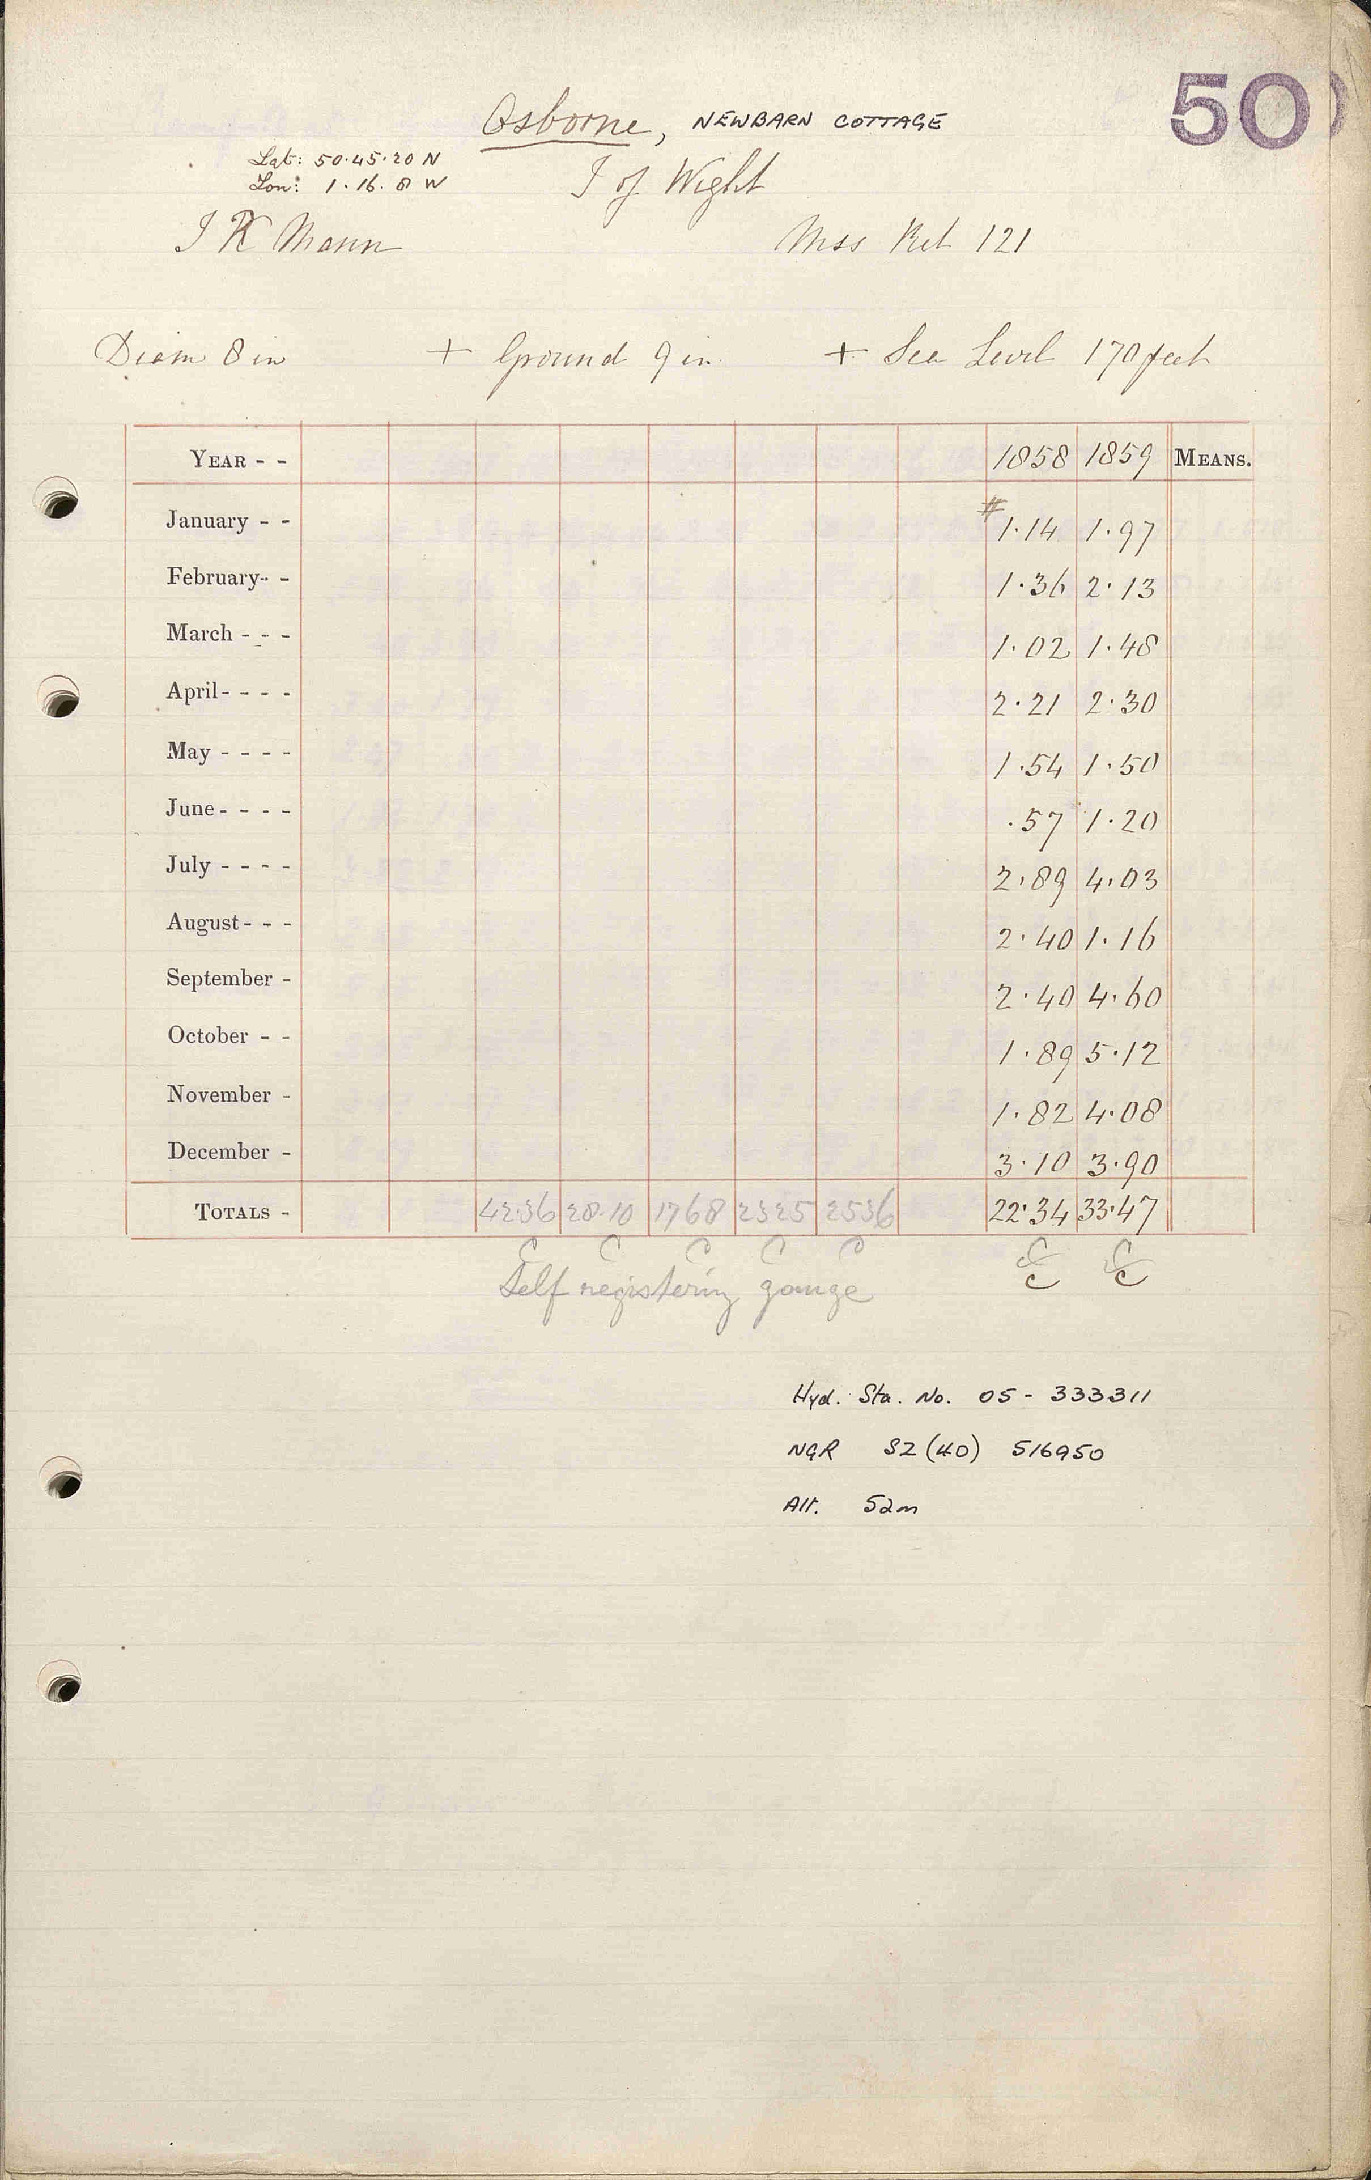 50
Osborne, NEWBARN COTTAGE
Lat: 50.45.20 N
Lon: 1.16.8 W
I of Wight
J R Mann Mss Ret 121
Diam 8 in + Ground 9 in + Sea Level 170 feet
YEAR - - 1858 1859 MEANS.
January - - # 1.14 1.97
February - - 1.36 2.13
March - - - 1.02 1.48
April - - - - 2.21 2.30
May - - - - 1.54 1.50
June - - - - .57 1.20
July - - - - 2.89 4.03
August - - - 2.40 1.16
September - 2.40 4.60
October - - 1.89 5.12
November - 1.82 4.08
December - 3.10 3.90
TOTALS - 42.36 28.10 17 68 23 25 25 36 22.34 33.47
C C C C C C C
Self registering gauge
Hyd. Sta. No. 05 - 333311
NGR SZ (40) 516950
Alt. 52m